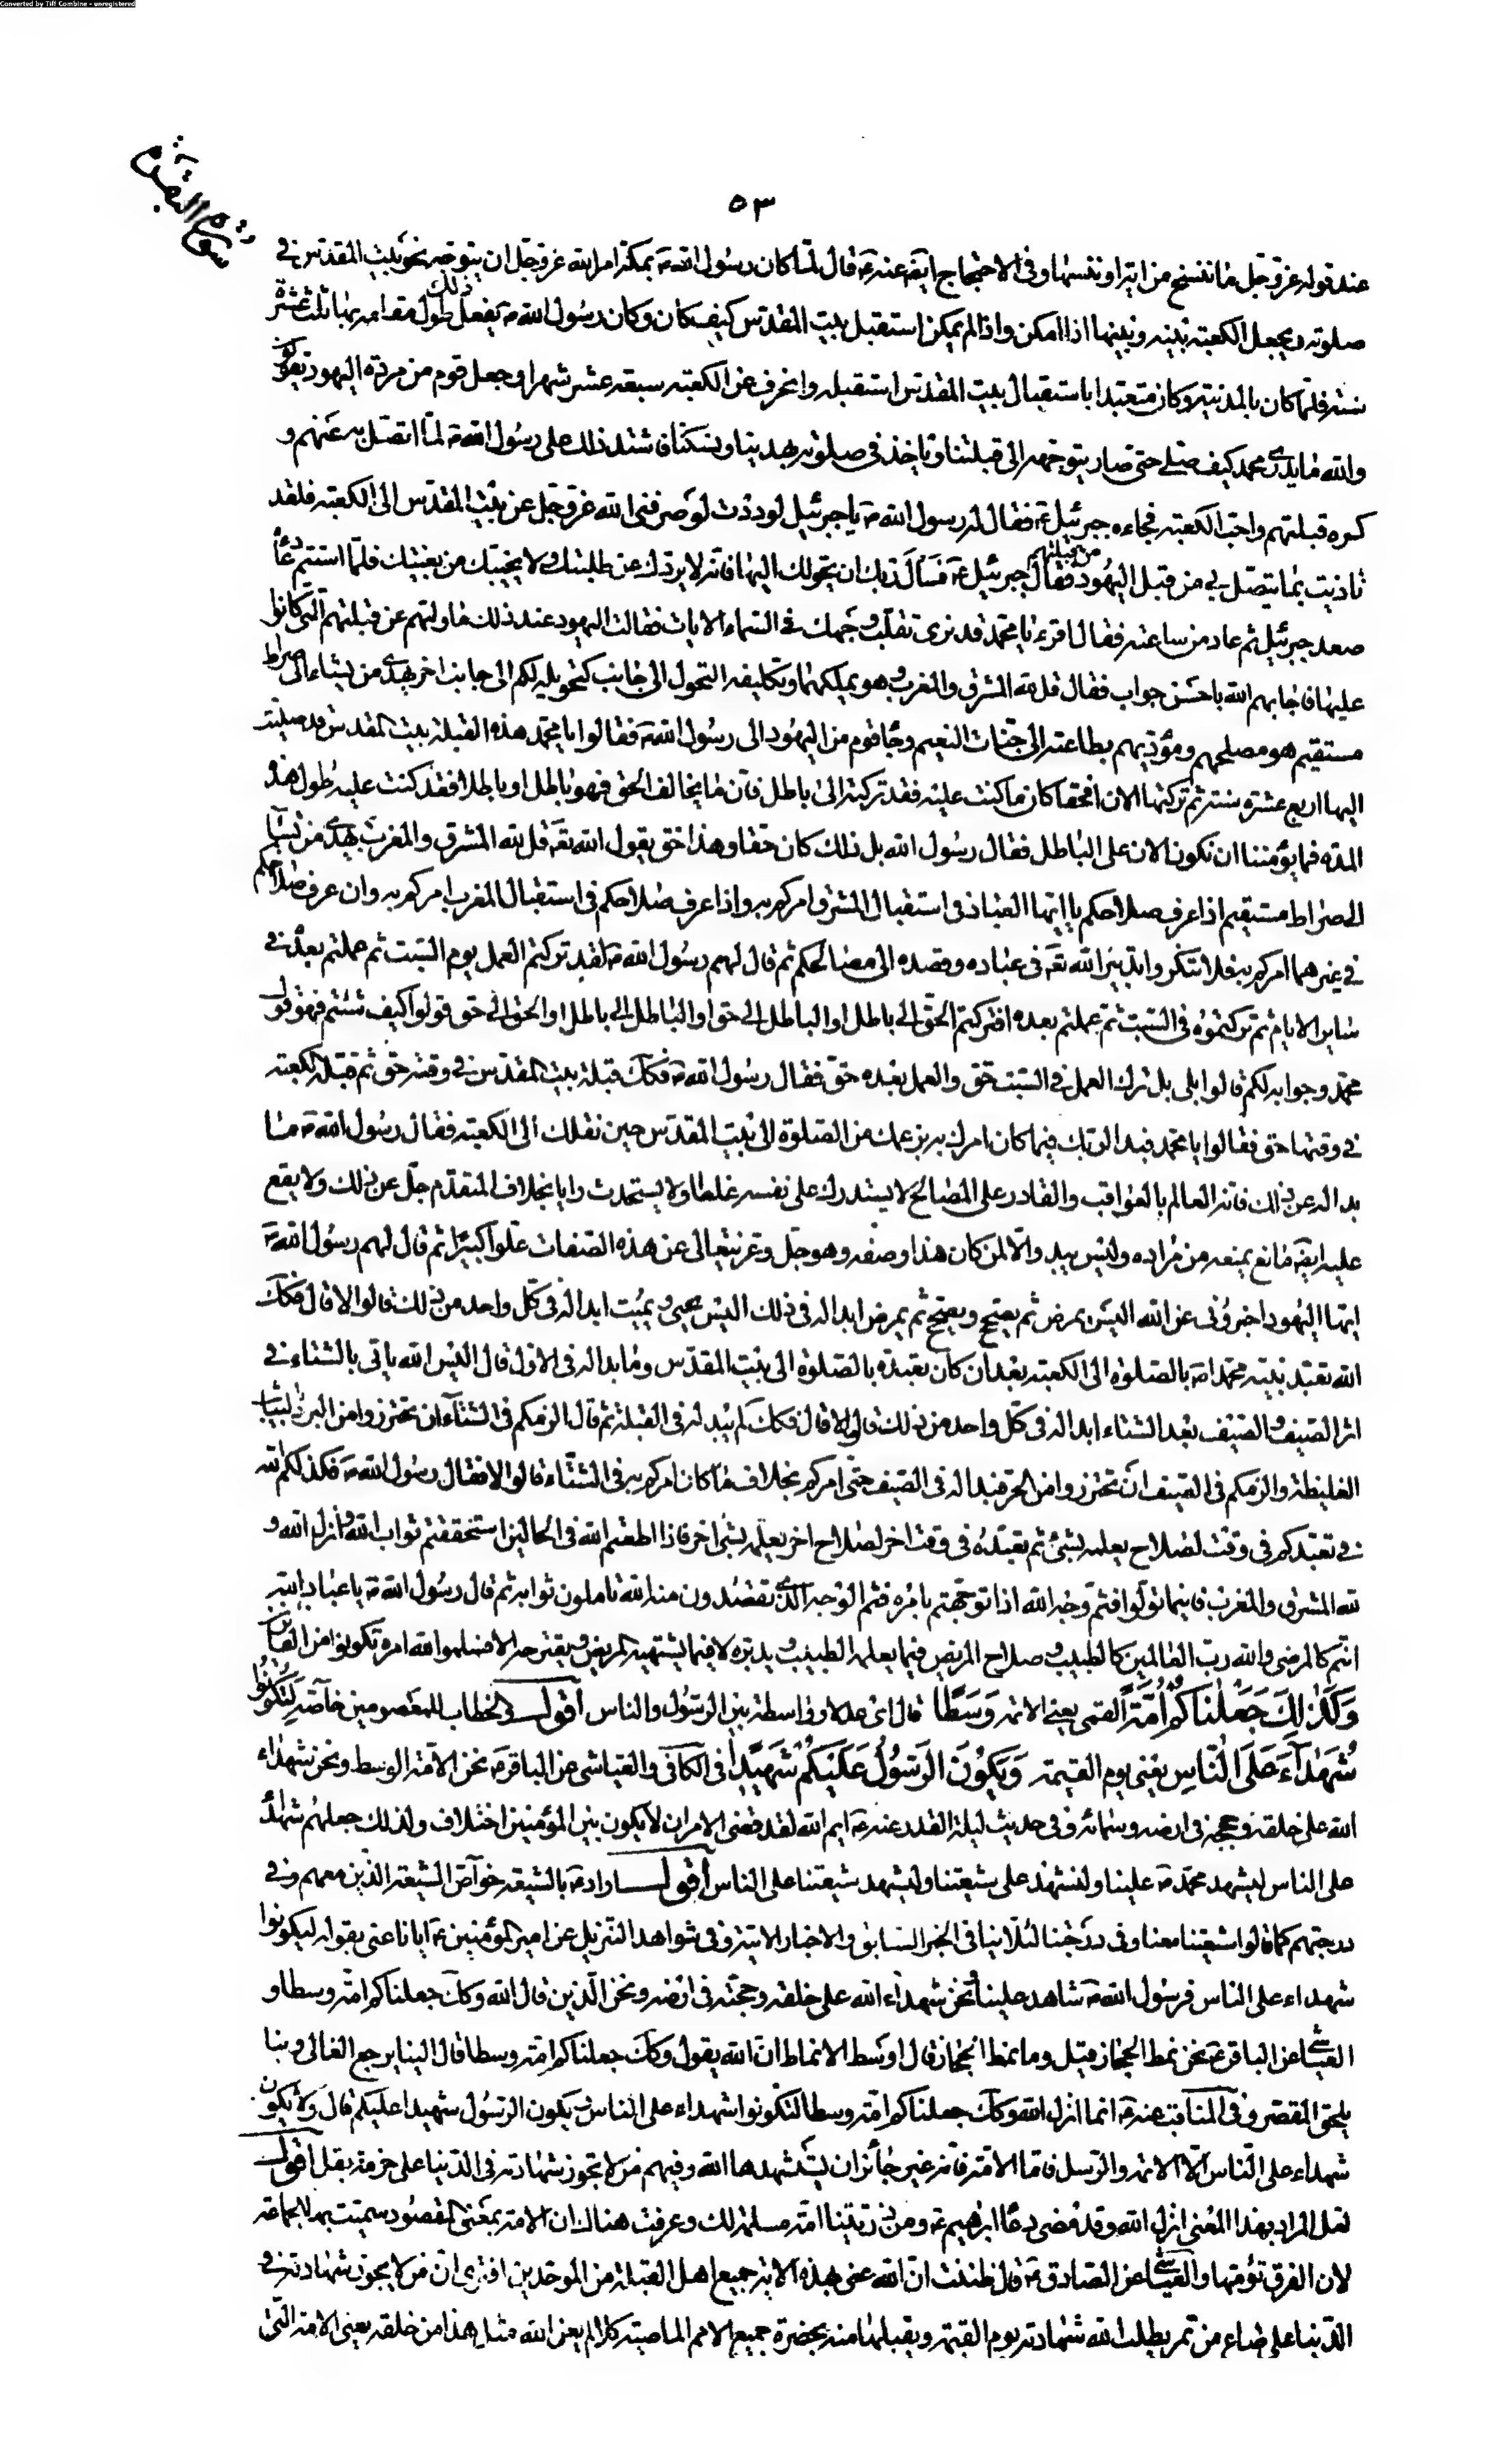 Converted by Tiff Combine - unregistered
سورة البقرة
٥٣
عند قوله عز وجل ما ننسخ من اية او ننسها وفى الاحتجاج ايضا عنه ع قال لما كان رسول الله ص بمكة امر الله عز وجل ان يتوجه نحو بيت المقدس فى
صلوته ويجعل الكعبة بينه وبينها اذا امكن واذا لم يمكن استقبل بيت المقدس كيف كان وكان رسول الله ص يفعل ذلك طول مقامه بها ثلث عشرة
سنة فلما كان بالمدينة وكان متعبدا باستقبال بيت المقدس استقبله وانحرف عن الكعبة سبعة عشر شهرا وجعل قوم من مردة اليهود يقولون
والله ما يدرى محمد كيف صلى حتى صار يتوجه الى قبلتنا وياخذ فى صلوته بهدينا ونسكنا فاشتد ذلك على رسول الله ص لما اتصل به عنهم و
كره قبلتهم واحب الكعبة فجاءه جبرئيل ع فقال له رسول الله ص يا جبرئيل لوددت لو صرفنى الله عز وجل عن بيت المقدس الى الكعبة فلقد
تاذيت بما يتصل بى من قبل اليهود من قبلتهم فقال جبرئيل ع فسأل ربك ان يحولك اليها فانه لا يردك عن طلبتك ولا يخيبك من بغيتك فلما استتم دعاءه
صعد جبرئيل ثم عاد من ساعته فقال اقرء يا محمد قد نرى تقلب وجهك فى السماء الايات فقالت اليهود عند ذلك ما وليهم عن قبلتهم التى كانوا
عليها فاجابهم الله باحسن جواب فقال قل لله المشرق والمغرب وهو يملكهما وتكليفه التحول الى جانب كتحويله لكم الى جانب اخر يهدى من يشاء الى صراط
مستقيم هو مصلحهم ومؤديهم بطاعته الى جنات النعيم وجاء قوم من اليهود الى رسول الله ص فقالوا يا محمد هذه القبلة بيت المقدس قد صليت
اليها اربع عشرة سنة ثم تركتها الان افحقا كان ما كنت عليه فقد تركته الى باطل فان ما يخالف الحق فهو باطل او باطلا فقد كنت عليه طول هذه
المدة فما يؤمننا ان تكون الان على الباطل فقال رسول الله بل ذلك كان حقا وهذا حق يقول الله تع قل لله المشرق والمغرب يهدى من يشاء
الى صراط مستقيم اذا عرف صلاحكم يا ايها العباد فى استقبال المشرق امركم به واذا عرف صلاحكم فى استقبال المغرب امركم به وان عرف صلاحكم
فى غيرهما امركم به فلا تنكروا تدبير الله تع فى عباده وقصده الى مصالحكم ثم قال لهم رسول الله ص لقد تركتم العمل يوم السبت ثم عملتم بعده فى
ساير الايام ثم تركتموه فى السبت ثم عملتم بعده افتركتم الحق الى باطل او الباطل الى حق او الباطل الى باطل او الحق الى حق قولوا كيف شئتم فهو قول
محمد وجوابه لكم قالوا بلى بل ترك العمل فى السبت حق والعمل بعده حق فقال رسول الله ص فكك قبلة بيت المقدس فى وقته حق ثم قبلة الكعبة
فى وقتها حق فقالوا يا محمد فبدا لربك فيما كان امرك به بزعمك من الصلوة الى بيت المقدس حين نقلك الى الكعبة فقال رسول الله ص ما
بدا له عن ذلك فانه العالم بالعواقب والقادر على المصالح لا يستدرك على نفسه غلطا ولا يستحدث رايا بخلاف المتقدم جل عن ذلك ولا يقع
عليه ايضا مانع يمنعه من مراده وليس يبدو الا لمن كان هذا وصفه وهو جل وعز يتعالى عن هذه الصفات علوا كبيرا ثم قال لهم رسول الله ص
ايها اليهود اخبرونى عن الله اليس يمرض ثم يصح ويصح ثم يمرض ابدا له فى ذلك اليس يحيى ويميت ابدا له فى كل واحد من ذلك قالوا لا قال فكك
الله تعبد نبيه محمدا ص بالصلوة الى الكعبة بعد ان كان تعبده بالصلوة الى بيت المقدس وما بدا له فى الاول قال اليس الله ياتى بالشتاء فى
اثر الصيف والصيف بعد الشتاء ابدا له فى كل واحد من ذلك قالوا لا قال فكك لم يبد له فى القبلة ثم قال الزمكم فى الشتاء ان تحترزوا من البرد بالثياب
الغليظة والزمكم فى الصيف ان تحترزوا من الحر فبدا له فى الصيف حتى امركم بخلاف ما كان امركم به فى الشتاء قالوا لا فقال رسول الله ص فكذلكم الله
فى تعبدكم فى وقت لصلاح يعلمه بشئ ثم تعبده فى وقت اخر لصلاح اخر يعلمه بشئ اخر فاذا اطعتم الله فى الحالين استحققتم ثواب الله وانزل الله و
لله المشرق والمغرب فاينما تولوا فثم وجه الله اذا توجهتم بامره فثم الوجه الذى تقصدون منه الله تاملون ثوابه ثم قال رسول الله ص يا عباد الله
انتم كالمرضى والله رب العالمين كالطبيب وصلاح المريض فيما يعلمه الطبيب ويدبره لا فيما يشتهيه المريض ويقترحه الا فسلموا الله امره تكونوا من الفائزين
وَكَذٰلِكَ جَعَلْنَاكُمْ اُمَّةً القمى يعنى الائمة وَسَطًا قال اى عدلا وواسطة بين الرسول والناس اقول الخطاب للمعصومين خاصة لِتَكُونُوا
شُهَدَآءَ عَلَى النَّاسِ يعنى يوم القيمة وَيَكُونَ الرَّسُولُ عَلَيْكُمْ شَهِيدًا فى الكافى والعياشى عن الباقر ع نحن الامة الوسط ونحن شهداء
الله على خلقه وحججه فى ارضه وسمائه وفى حديث ليلة القدر عنه ع ايم الله لقد قضى الامر ان لا يكون بين المؤمنين اختلاف ولذلك جعلهم شهداء
على الناس ليشهد محمد ص علينا ولنشهد على شيعتنا وليشهد شيعتنا على الناس اقول اراد ع بالشيعة خواص الشيعة الذين معهم وفى
درجتهم كما قالوا شيعتنا معنا وفى درجتنا لئلا ينافى الخبر السابق والاخبار الاتية وفى شواهد التنزيل عن امير المؤمنين ع ايانا عنى بقوله ليكونوا
شهداء على الناس فرسول الله ص شاهد علينا ونحن شهداء الله على خلقه وحجته فى ارضه ونحن الذين قال الله وكك جعلناكم امة وسطا و
العياشى عن الباقر ع نحن نمط الحجاز فقيل وما نمط الحجاز قال اوسط الانماط ان الله يقول وكك جعلناكم امة وسطا قال الينا يرجع الغالى وبنا
يلحق المقصر وفى المناقب عنه ع انما انزل الله وكك جعلناكم امة وسطا لتكونوا شهداء على الناس ويكون الرسول شهيدا عليكم قال ولا يكون
شهداء على الناس الا الائمة والرسل فاما الامة فانه غير جائز ان يستشهدها الله وفيهم من لا تجوز شهادته فى الدنيا على حزمة بقل اقول
لعل المراد بهذا المعنى انزل الله وقد مضى دعاء ابرهيم ع ومن ذريتنا امة مسلمة لك وعرفت هناك ان الامة بمعنى المقصود سميت بها الجماعة
لان الفرق تؤمها والعياشى عن الصادق ع قال ظننت ان الله عنى بهذه الاية جميع اهل القبلة من الموحدين افترى ان من لا يجوز شهادته فى
الدنيا على صاع من تمر يطلب الله شهادته يوم القيمة ويقبلها منه بحضرة جميع الامم الماضية كلا لم يعن الله مثل هذا من خلقه يعنى الامة التى